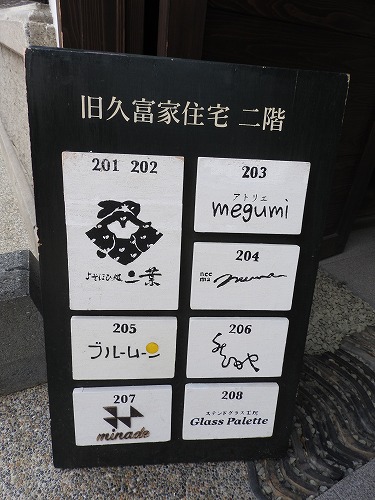 旧久富家住宅 二階
201 202
よそほひ処 二葉
203
アトリエ
megumi
204
nee
ma
neema
205
ブルームーン
206
207
minade
208
ステンドグラス工房
Glass Palette